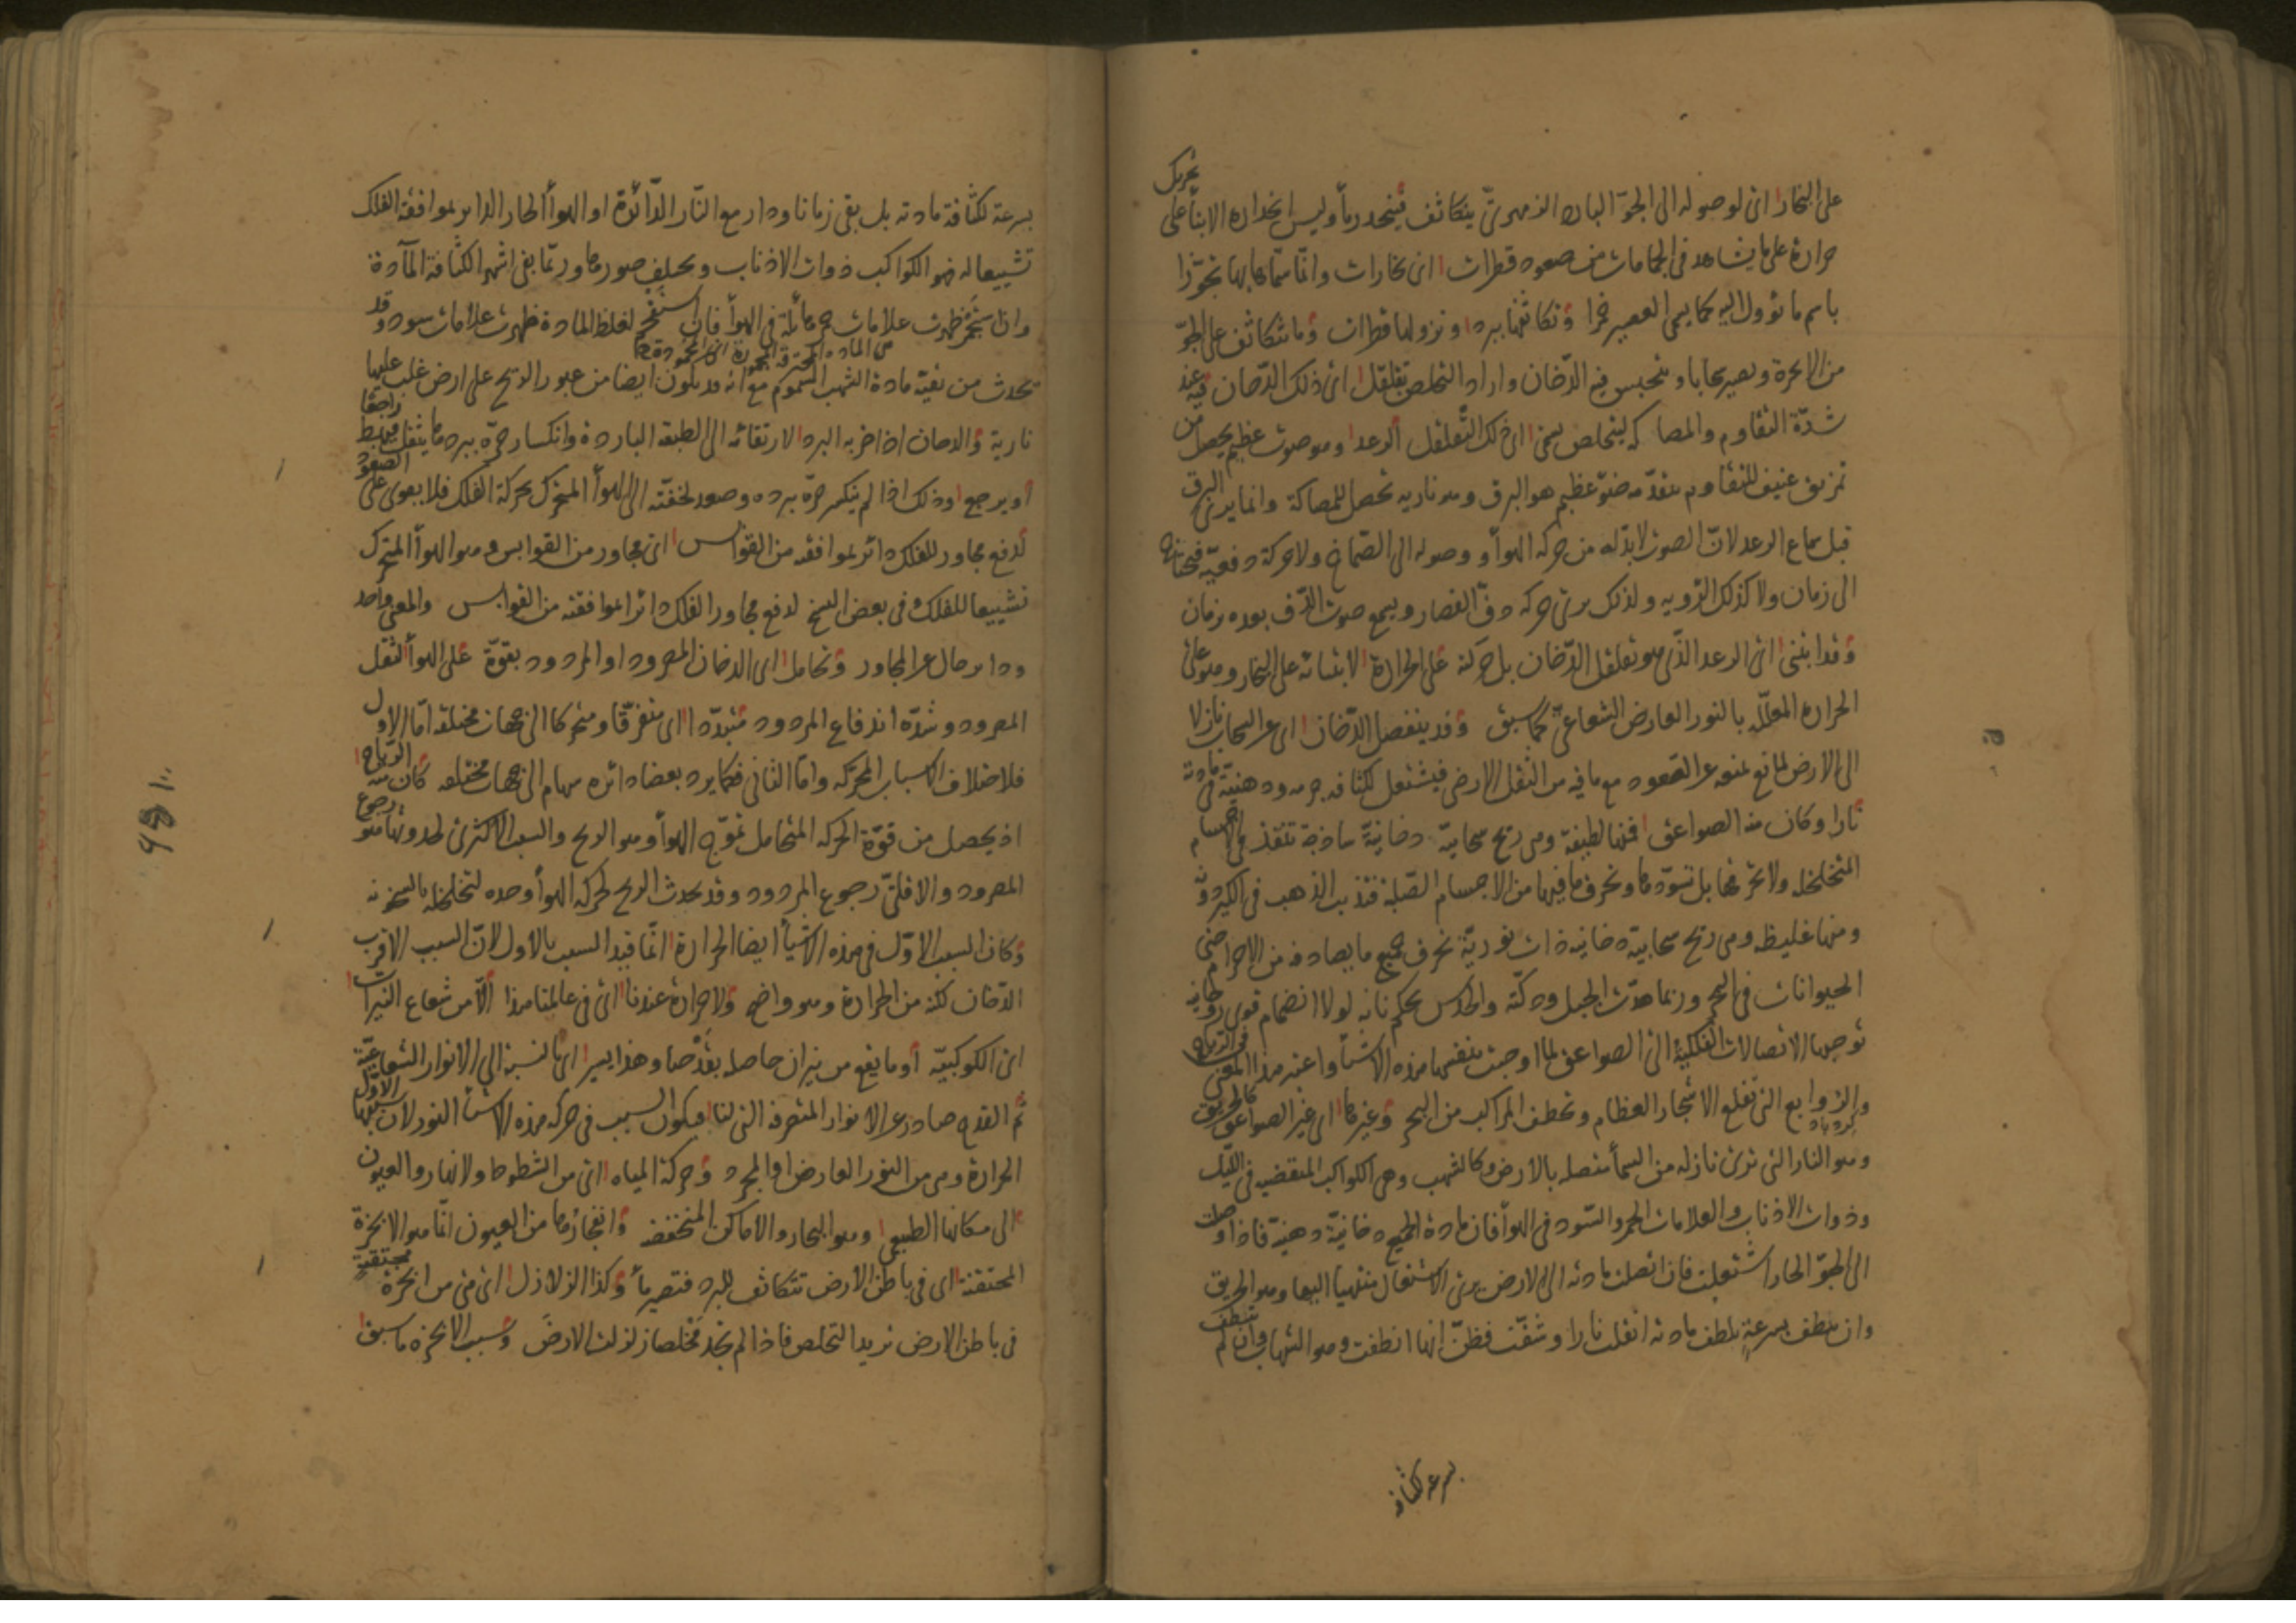 تحريك
على البخار اى لوصوله الى الجو البارد الزمهرىّ يتكاثف فينحدر ماءً وليس انحداره الا بناءً على
حرارة على ما يشاهد فى الحمامات من صعود قطرات اى بخارات وانّما سمّاها بها تجوّزا
باسم ما تؤول اليه كما يسمى العصير خمرا وتكاثفها ببرد ونزولها قطرات وما يتكاثف على الجوّ
من الابخرة ويصير سحابا وينحبس فيه الدّخان واراد التخلص تقلقل اى ذلك الدّخان فيه عند
شدّة التقاوم والمصاكّة ليتخلص يسمى اى ذلك التّقلقل الرعد وهو صوت عظيم يحصل من
تمزيق عنيف للتقاوم يتقدّمه ضوّ عظيم هو البرق وهو ناريه تحصل للمصاكة وانما يرى البرق
قبل سماع الرعد لانّ الصوت لابدّ له من حركه الهواء ووصوله الى الصّماخ ولا حركة دفعيّة فيحتاج
الى زمان ولا كذلك الرؤيه ولذلك يرى حركه دقّ القصار ويسمع صوت الدّق بعده بزمان
وقد ابتنى اى الرعد الذّى هو تقلقل الدّخان بل حركته على الحرارة لابتنائه على البخار وهو على
الحراره المعلّله بالنور العارض الشعاعىّ كما سبق وقد ينفصل الدّخان اى عن السحاب نازلا
الى الارض لمانع يمنعه عن الصّعود مع ما فيه من الثقل الارضى فيشتعل لكثافه جرمه ودهنيّة فى مادته
نارا وكان منه الصواعق فمنها لطيفة وهى ريح سحابيّة دخانيّة ساذجة تنفذ فى الاجسام
المتخلخله ولا تحرقها بل تسوّدها وتحرق ما فيها من الاجسام الصّلبة فتذيب الذهب فى الكيس دونه
ومنها غليظه وهى ريح سحابيّة دخانيه ذات نوريّة تحرق جميع ما يصادفه من الاجرام حتى
الحيوانات فى البحر وربما هدّت الجبل ودكّته والحدس يحكم بانه لولا انضمام قوى روحانيه
توجبها الاتصالات الفلكيّة الى الصواعق لما اوجبت بنفسها هذه الاشياء واعتبر هذا المعنى فى الرياح
والزوابع التى تقلع الاشجار العظام وتخطف المراكب من البحر وغيرها اى غير الصواعق كالحريق
كردباد
وهو النار التى ترى نازله من السماء متصله بالارض وكالشهب وهى الكواكب المنقضيه فى اللّيل
وذوات الاذناب والعلامات الحمر والسّود فى الهواء فان مادة الجميع دخانيّة دهنيّة فاذا وصلت
الى الجوّ الحار اشتعلت فان اتصلت مادته الى الارض يرى الاشتعال منتهيا اليها وهو الحريق
وان تلطف بسرعةٍ بلطف مادته انقلب نارا وشفّت فظنّ انها انطفت وهو الشهاب وان لم تنطف
بسرعه لكثافه
بسرعة لكثافة مادته بل بقى زمانا ودار مع النّار الدّائرة او الهواء الحار الدائر بموافقة الفلك
تشييعا له فهو الكواكب ذوات الاذناب ويختلف صورها وربّما بقى اشهرا لكثافة المآدة
وان ظهرت علامات حمر هائلة فى الهواء فان لغلظ المادة ظهرت علامات سود وقد
من المادة المحترقة
تحدث من بقيّة مادة الشهب السّموم مع انّه قد يكون ايضا من عبور الريح على ارض غلب عليها
نارية والدخان اذا ضربه البرد لارتقائه الى الطبقه الباردة وانكسار حرّه ببردها يثقل فيهبط راجعا
او يرجع وذلك اذا لم ينكسر حرّه ببرده وصعد لخفّته الى الهواء المتحرك بحركة الفلك فلا يقوى على الصعود
لدفع مجاور للفلك دائر بموافقه من القوابس اى مجاور من القوابس وهو الهواء المتحرك
تشييعا للفلك وفى بعض النسخ لدفع مجاور الفلك دائرا بموافقته من القوابس والمعنى واحد
ودائر حال عن المجاور وتحامل اى الدخان المصرود او المردود بقوّة على الهواء لثقل
المصرود وشدّه اندفاع المردود متبدّدا اى متفرّقا ومتحركا الى جهات مختلفه امّا الاول
فلاختلاف الاسباب المحرّكه وامّا الثانى فكما يرد بعضا دائره سهام الى جهات مختلفه كان منه الرّياح
اذ يحصل من قوّة الحركه المتحامل تموّج الهواء وهو الريح والسبب الاكثرى لحدوثها هو رجوع
المصرود والاقلىّ رجوع المردود وقد يحدث الريح لحركه الهواء وحده لتخلخله بالسخونه
وكان السبب الاوّل فى هذه الاشياء ايضا الحرارة انّما قيد السبب بالاول لانّ السبب الاقرب
الدّخان لكنّه من الحرارة وهو واضح ولا حرارة عندنا اى فى عالمنا هذا الّا من شعاع النيرات
اى الكوكبيّه او ما يقع من نيران حاصله بقدْحنا وهذا يسير اى بالنسبة الى الانوار الشعاعيّة
ثم القدح صادر عن الانوار المتصرفه التى لنا فيكون السبب فى حركه هذه الاشياء النور لان سببها الاوّل
الحرارة وهى من النور العارض او المجرد وحركة المياه اى من الشطوط والانهار والعيون
الى مكانها الطبيعى وهو البحار والاماكن المنخفضه وانفجارها من العيون انّما هو الابخرة
المحتقنه اى فى باطن الارض تتكاثف للبرد فتصير ماءً وكذا الزلازل اى هى من ابخرة محتقنةٍ
فى باطن الارض تريد التخلص فاذا لم تجد مخلصا زلزلت الارض وسبب الابخره ما سبق